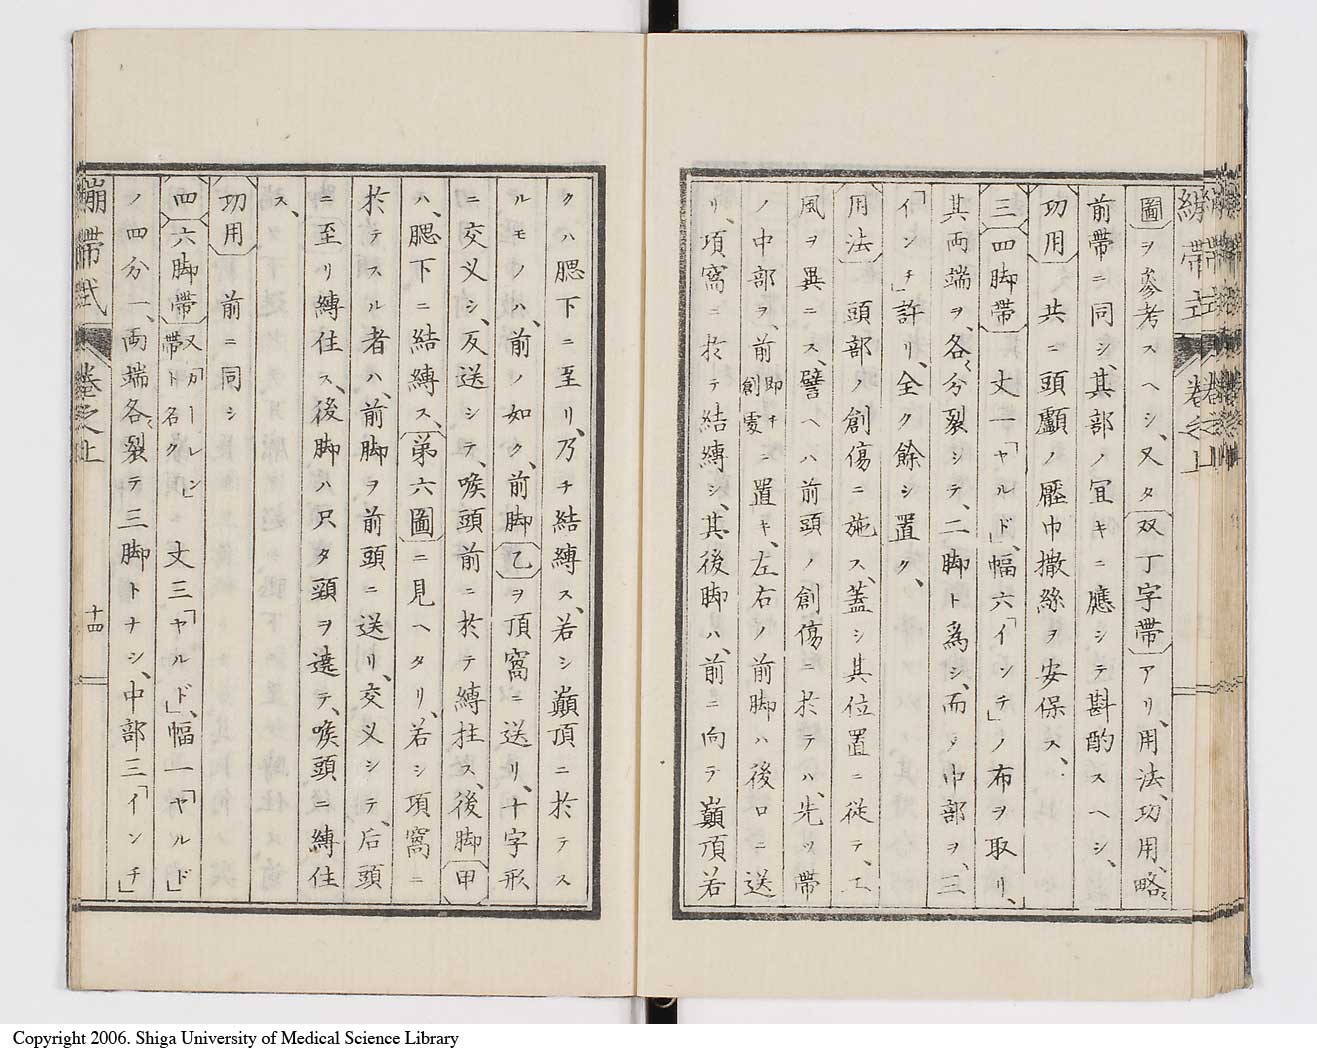 圖ヲ參考スヘシ、又タ双丁字帶アリ、用法、功用、略、
前帶ニ同シ、其部ノ宜キニ應シテ斟酌スヘシ、
功用 共ニ頭顱ノ壓巾撒絲ヲ安保ス、
三 四脚帶 丈一「ヤルド」、幅六「インチ」ノ布ヲ取リ、
其両端ヲ、各〻分裂シテ、二脚ト爲シ、而タ中部ヲ、三
「インチ」許リ、全ク餘シ置ク、
用法 頭部ノ創傷ニ施ス、蓋シ其位置ニ從テ、工
風ヲ異ニス、譬ヘハ前頭ノ創傷ニ於テハ、先ツ帶
ノ中部ヲ、前即チ創處ニ置キ、左右ノ前脚ハ後ロニ送
リ、項窩ニ於テ結縛シ、其後脚ハ、前ニ向テ巔頂若
クハ腮下ニ至リ、乃チ結縛ス、若シ巔頂ニ於テス
ルモノハ、前ノ如ク、前脚乙ヲ頂窩ニ送リ、十字形
ニ交乂シ、反送シテ、喉頭前ニ於テ縛拄ス、後脚甲
ハ、腮下ニ結縛ス、第六圖ニ見ヘタリ、若シ項窩ニ
於テスル者ハ、前脚ヲ前頭ニ送リ、交乂シテ、后頭
ニ至リ縛住ス、後脚ハ只タ頸ヲ遶テ、喉頭ニ縛住
ス、
功用 前ニ同シ
四 六脚帶 又「カーレン」帶ト名ク 丈三「ヤルド」、幅一「ヤルド」
ノ四分一、両端各〻裂テ三脚トナシ、中部三「インチ」
繃帶式 卷之上 十四
Copyright 2006. Shiga University of Medical Science Library